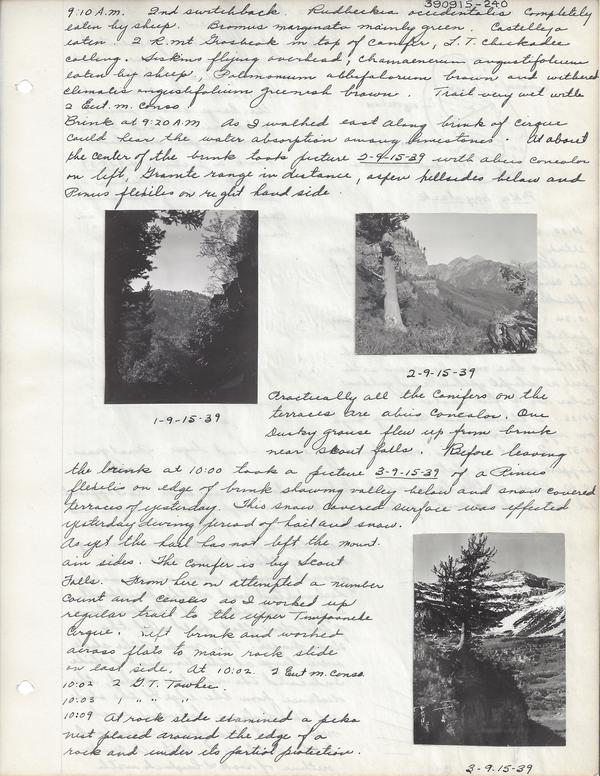 390915-240
9:10 A.M. 2nd switchback. Rudbeckia occidentalis completely
eaten by sheep. Bromus marginatus mainly green. Castelleja
eaten. 2 R.mt Grosbeak in top of conifer, L.T. Chickadee
calling. Siskins flying overhead, Chamaenerium angustifolium
eaten by sheep, Polemonium albiflorum brown and withered
Clematis angustifolium greenish brown. Trail very wet with
2 Eut. m. conso
Brink at 9:20 A.M. As I walked east along brink of cirque
could hear the water absorption among limestones. At about
the center of the brink took picture 2-9-15-39 with abies concolor
on left, Granite range in distance, aspen hillsides below and
Pinus flexilis on right hand side.
1-9-15-39
2-9-15-39
Practically all the conifers on the
terraces are abies concolor. One
Dusky grouse flew up from brink
near scout falls. Before leaving
the brink at 10:00 took a picture 3-9-15-39 of a Pinus
flexilis on edge of brink showing valley below and snow covered
terraces of yesterday. This snow covered surface was effected
yesterday during period of hail and snow.
As yet the hail has not left the mount
ain sides. The conifer is by Scout
Falls. From here on attempted a number
count and census as I worked up
regular trail to the upper Timpooneke
Cirque. Left brink and worked
across flats to main rock slide
on east side. At 10:02 2 Eut m. conso.
10:02 2 G.T. Towhee.
10:03 1 " " "
10:09 At rock slide examined a pika
nest placed around the edge of a
rock and under its partial protection.
3-9-15-39